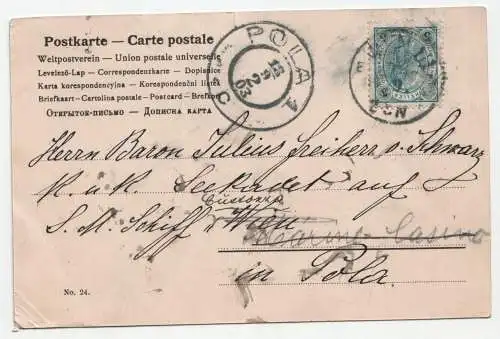 Postkarte — Carte postale
Weltpostverein — Union postale universelle
Levelező-Lap — Correspondenzkarte — Dopisnice
Karta korespondencyjna — Korespondenční lístek
Briefkaart — Cartolina postale — Postcard — Brefkort
Открытое-письмо — Дописна карта
POLA 1
Herrn Baron Julius Freiherr v. Schwarz
K. u. K. Seekadet auf
S. M. Schiff Wien
Marine-Casino
in Pola.
No. 24.